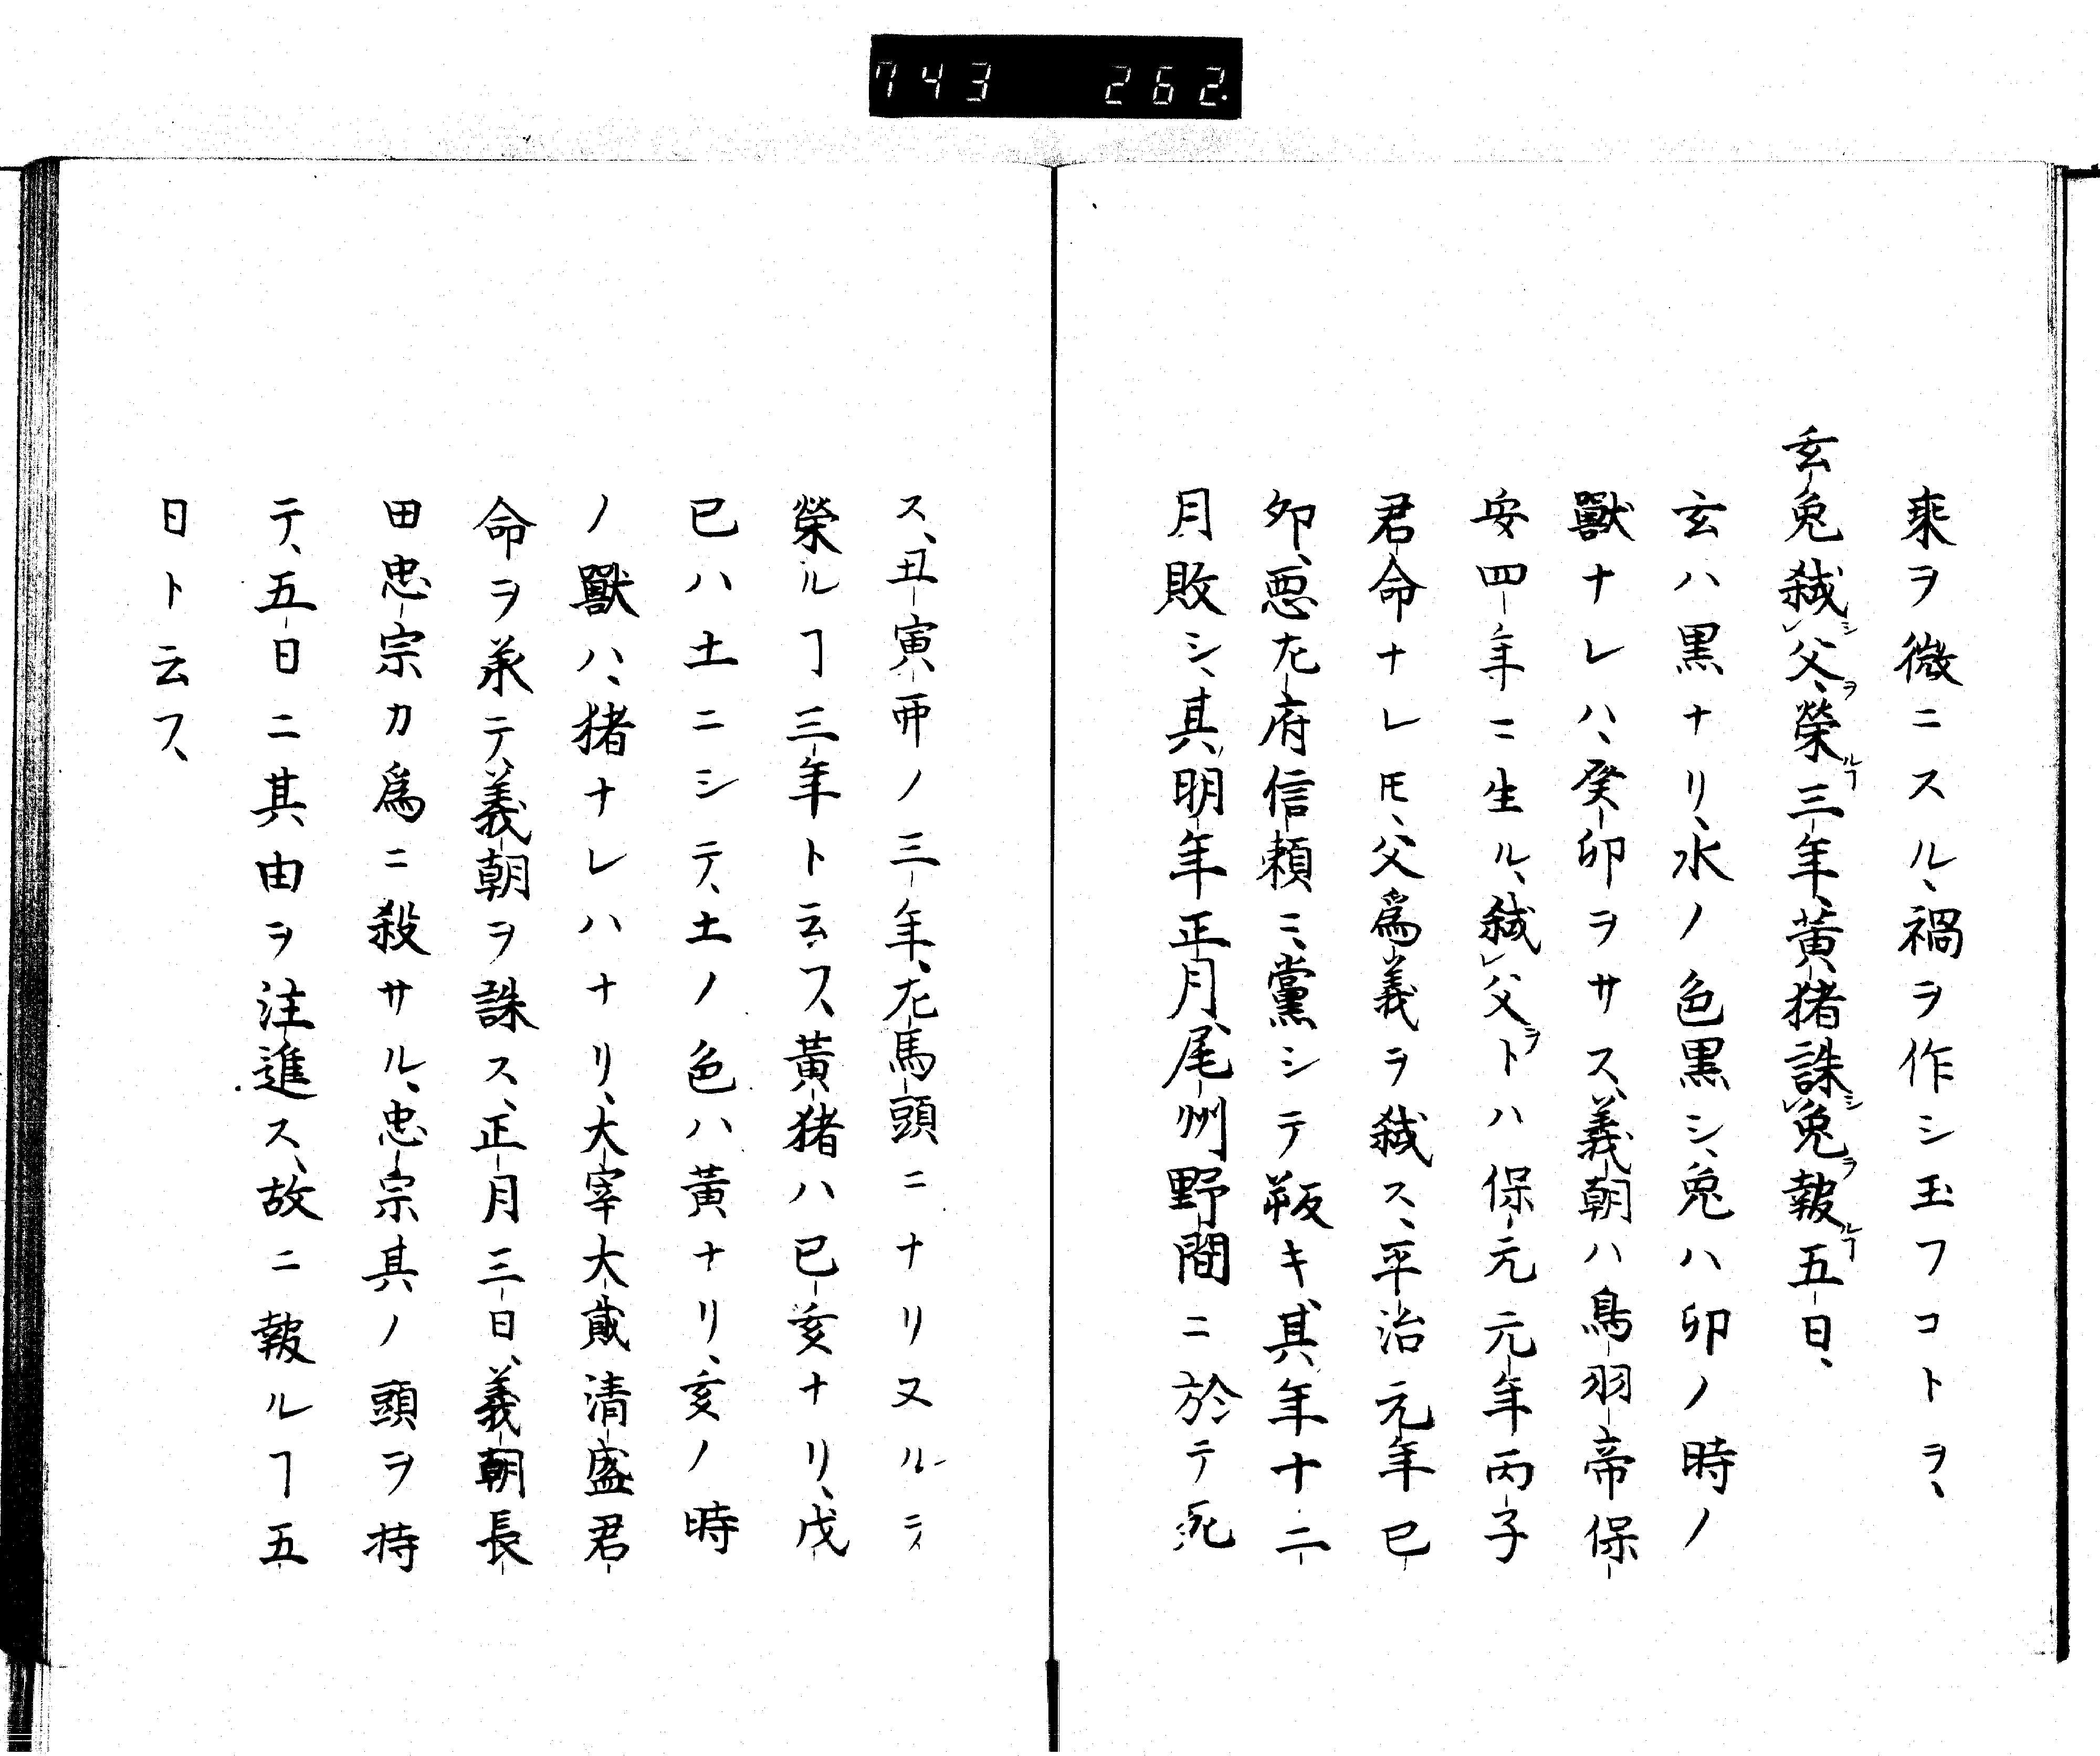 743 262.
乘ヲ微ニスル、禍ヲ作シ玉フコトヲ、
玄兎弑シ父ヲ、榮ルヿ三年、黄猪誅シ兎ヲ報ルヿ五日、
玄ハ黒ナリ、水ノ色黒シ、兎ハ卯ノ時ノ
獸ナレハ、癸卯ヲサス、義朝ハ鳥羽帝保
安四年ニ生ル、弑レ父ヲトハ保元元年丙子
君命ナレㇳモ、父爲義ヲ弑ス、平治元年己
夘、悪左府信頼ニ黨シテ叛キ、其年十二
月敗シ、其明年正月尾州野間ニ於テ死
ス、丑寅卯ノ三年、左馬頭ニナリヌルヲ
榮ルヿ三年ト云フ、黄猪ハ己亥ナリ、戊
己ハ土ニシテ、土ノ色ハ黄ナリ、亥ノ時
ノ獸ハ、猪ナレハナリ、大宰大貳清盛君
命ヲ承テ、義朝ヲ誅ス、正月三日、義朝長
田忠宗カ爲ニ殺サル、忠宗其ノ頭ヲ持
テ、五日ニ其由ヲ注進ス、故ニ報ルヿ五
日ト云フ、